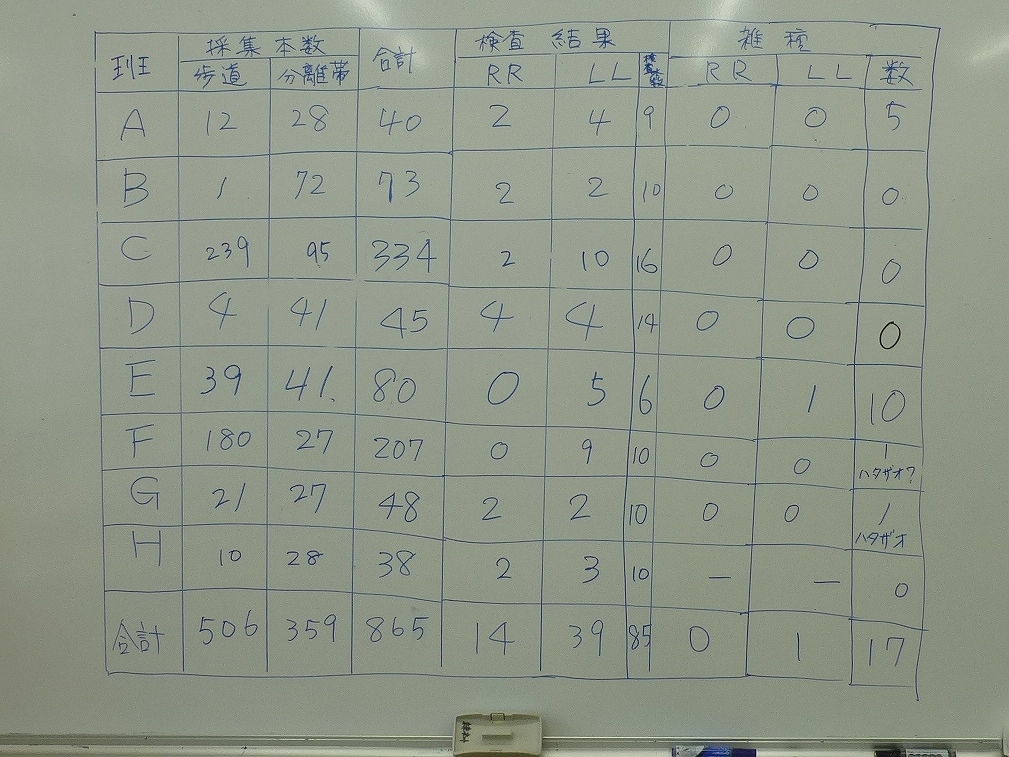 班 採集本数 合計 検査結果 雑種
歩道 分離帯 RR LL 検査本数 RR LL 数
A 12 28 40 2 4 9 0 0 5
B 1 72 73 2 2 10 0 0 0
C 239 95 334 2 10 16 0 0 0
D 4 41 45 4 4 14 0 0 0
E 39 41 80 0 5 6 0 1 10
F 180 27 207 0 9 10 0 0 1
ハタザオ?
G 21 27 48 2 2 10 0 0 1
ハタザオ
H 10 28 38 2 3 10 — — 0
合計 506 359 865 14 39 85 0 1 17